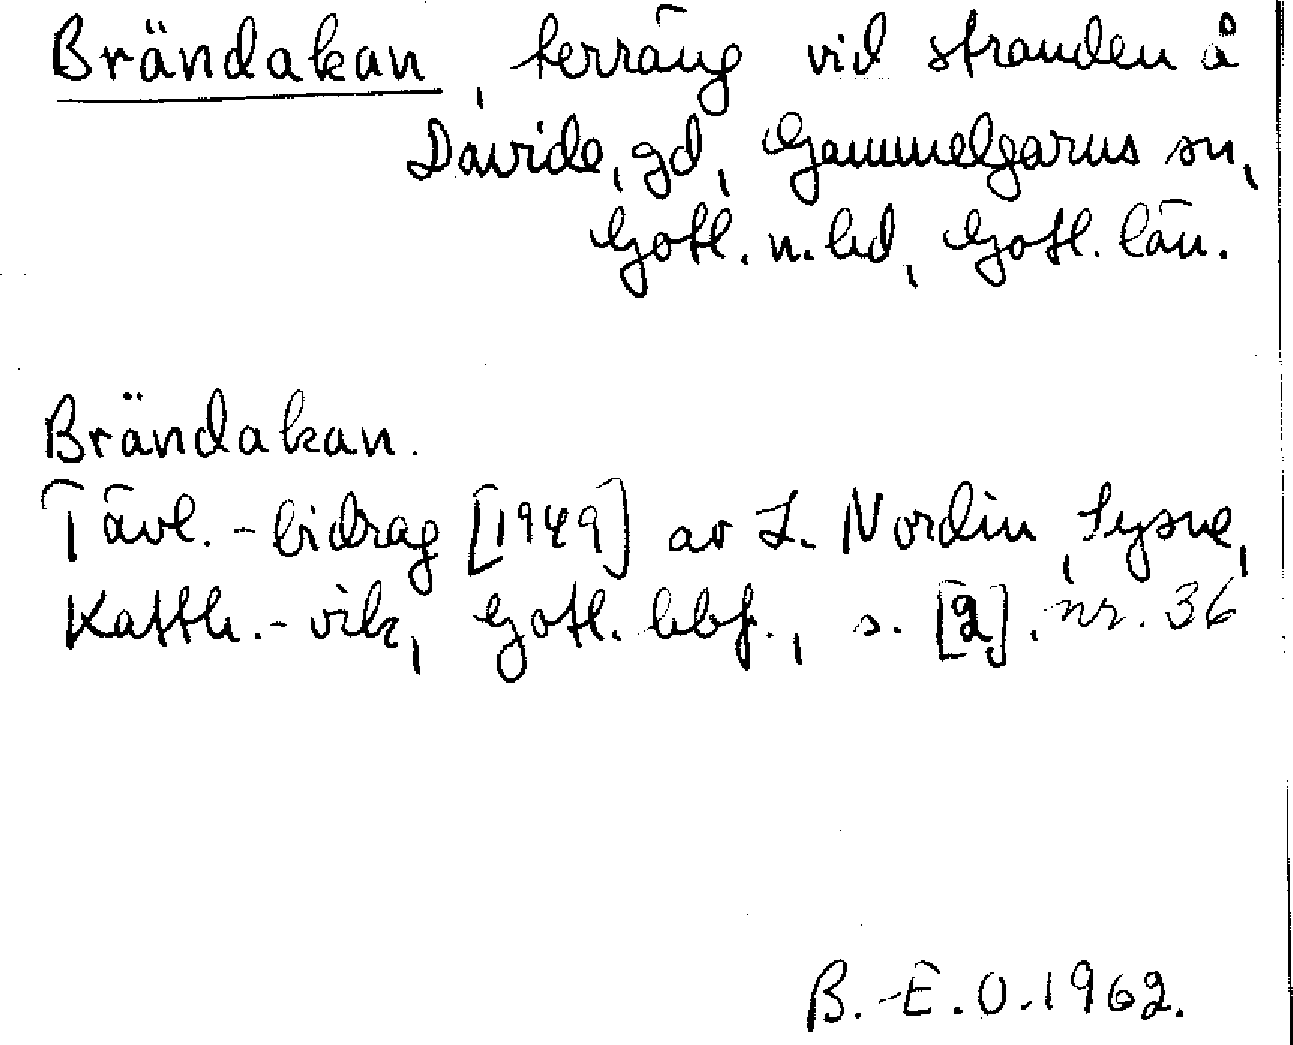 Brändakan, terräng vid stranden å
Davide, gd, Gammelgarns sn,
Gotl. n. hd, Gotl. län.
Brändakan.
Tävl.-bidrag [1949] av L. Nordin, Sysne,
Katth.-vik, Gotl. hbf., s. [2]. nr. 36
B.-E.O.1962.